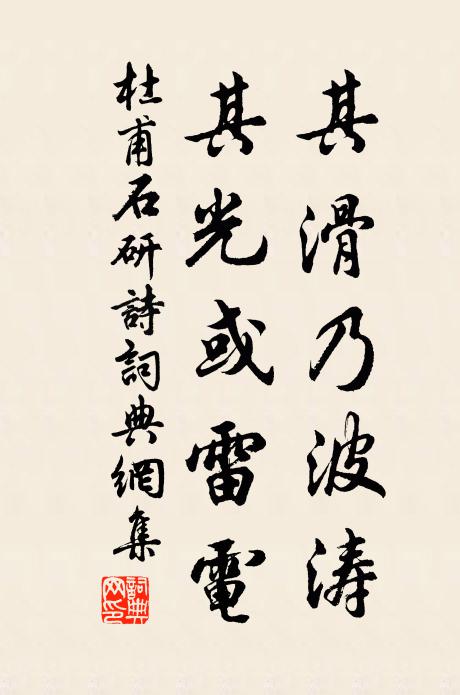 其滑乃波涛
其光或雷電
杜甫石研詩詞典網集
詞典網印